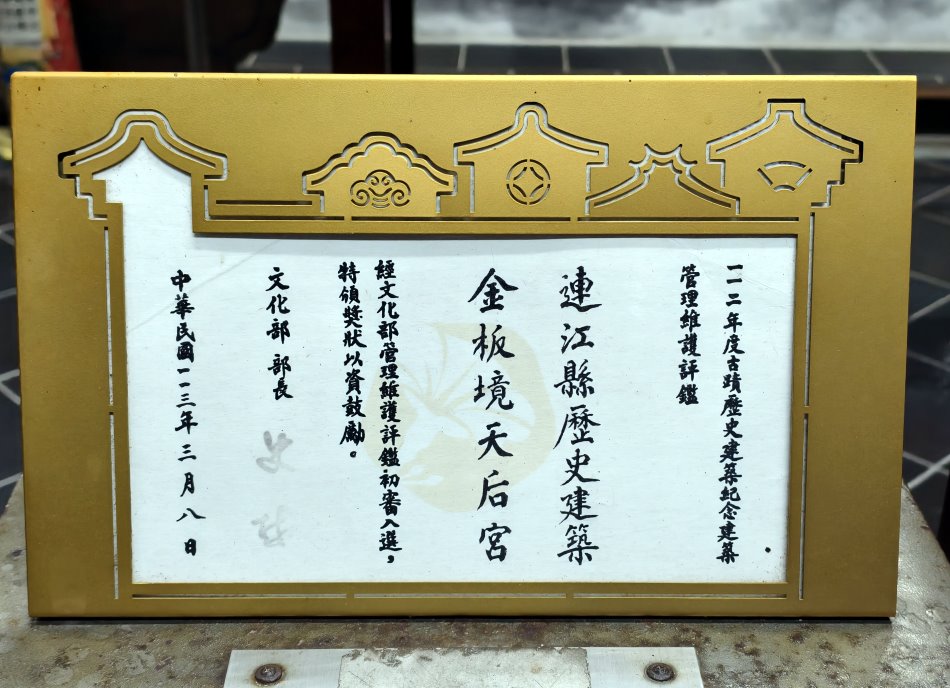 一一二年度古蹟歷史建築紀念建築
管理維護評鑑
連江縣歷史建築
金板境天后宮
經文化部管理維護評鑑初審入選，
特頒獎狀以資鼓勵。
文化部 部長
中華民國一一三年三月八日